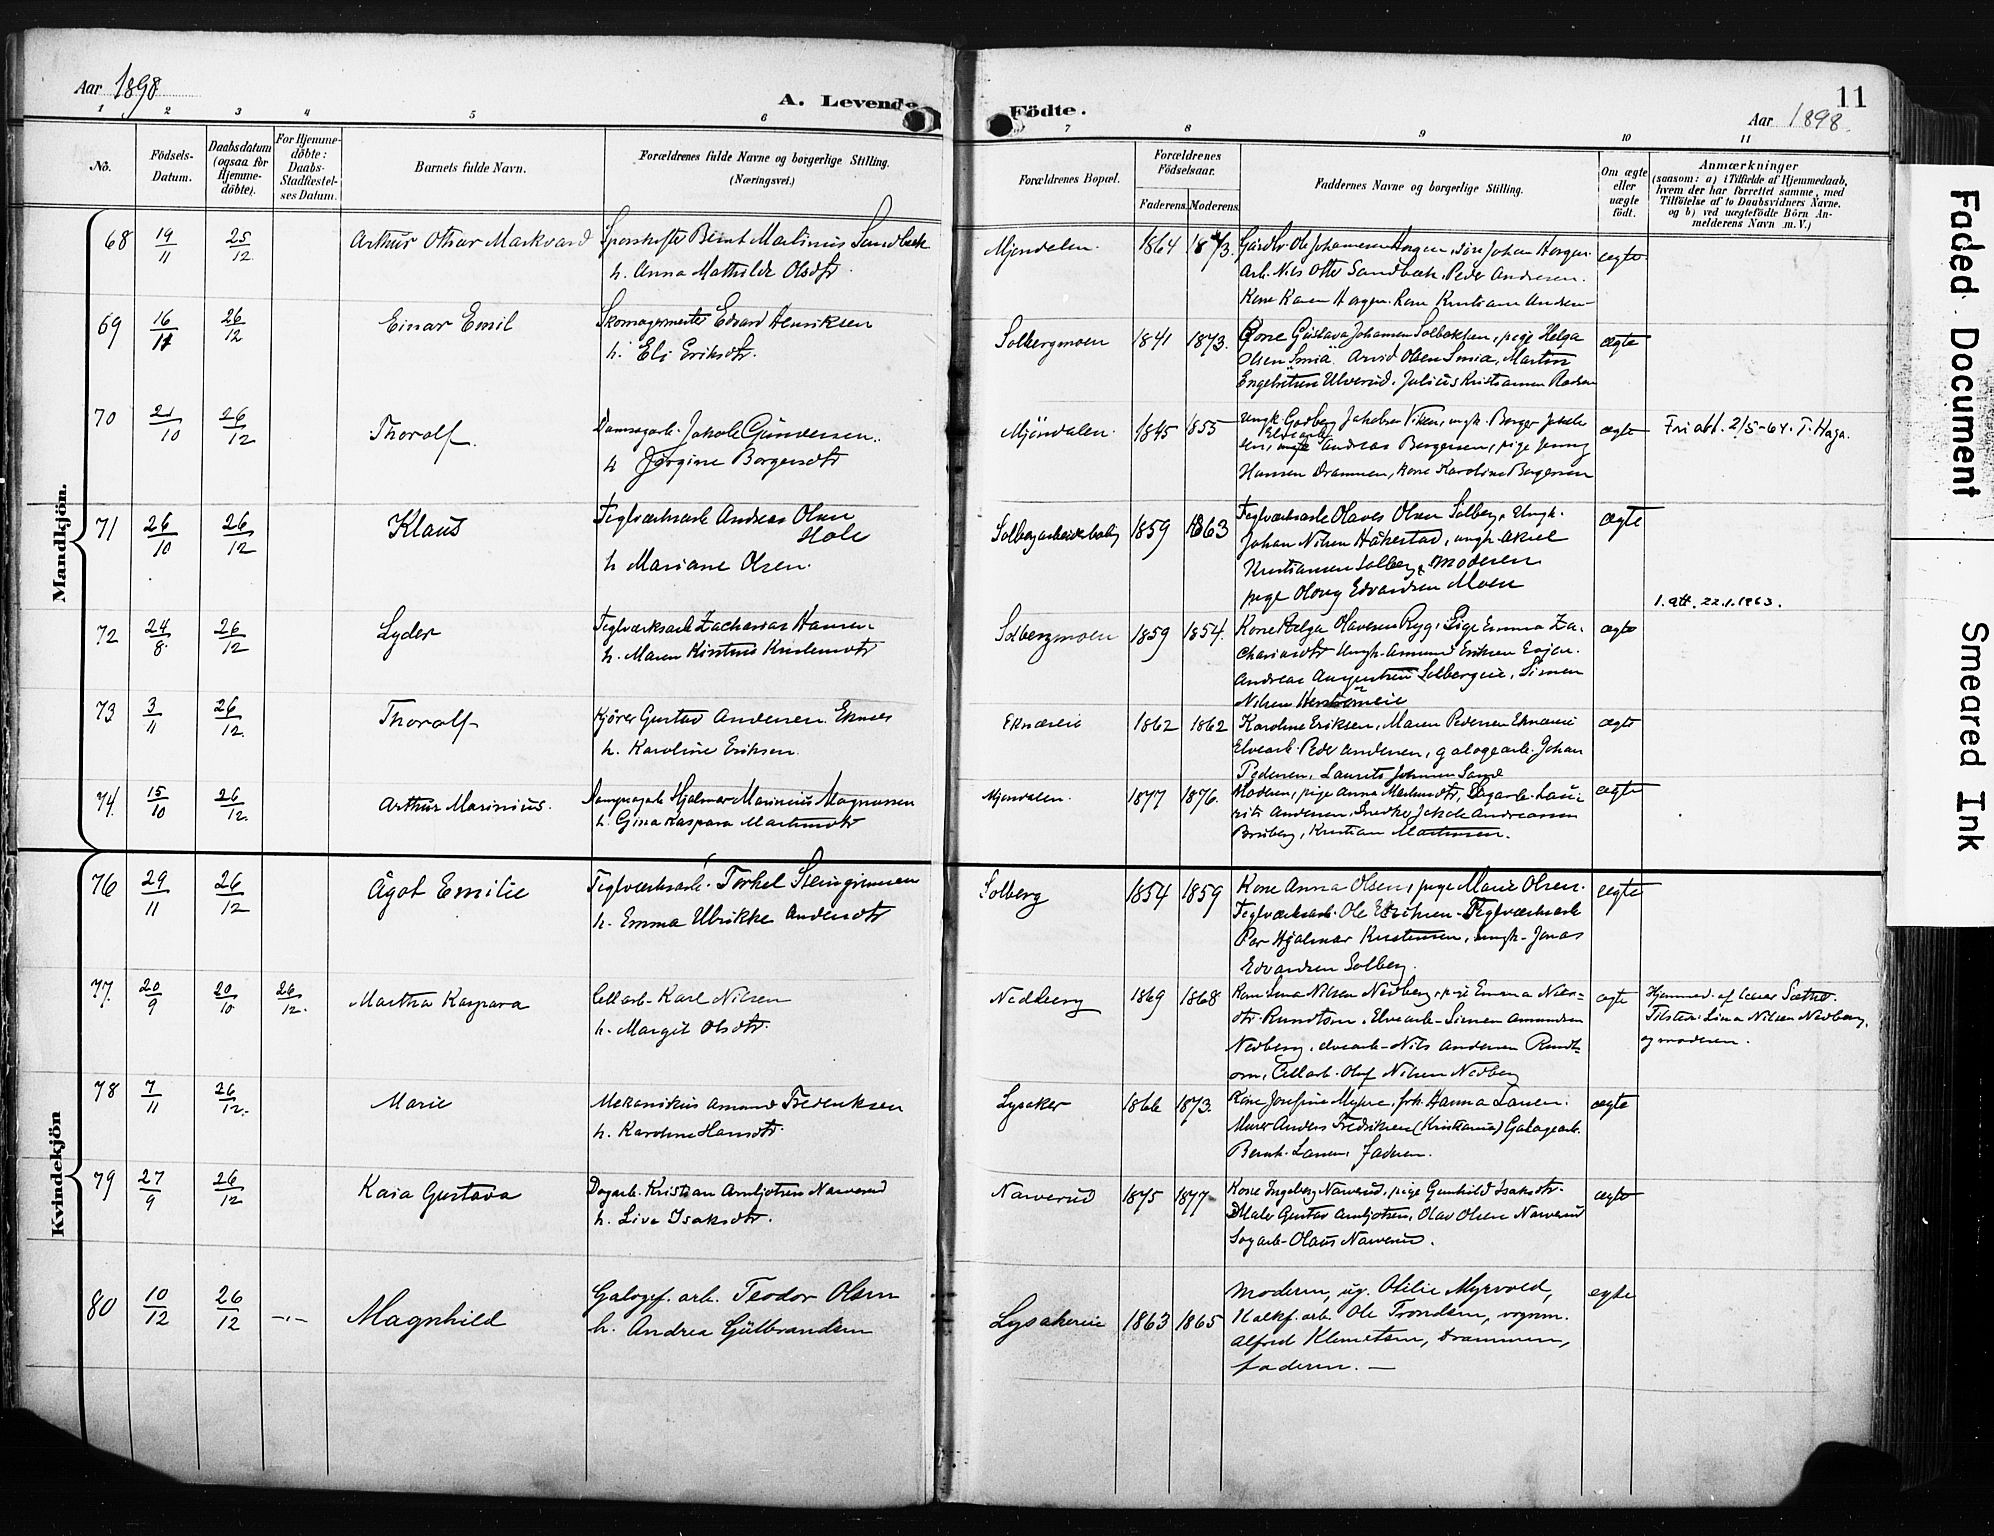 Aar 1898
A. Levende Födte.
11
Aar 1898.
1 2 3 4 5 6 7 8 9 10 11
No.
Födsels-
Datum.
Daabsdatum
(ogsaa for
Hjemme-
döbte).
For Hjemme-
döbte:
Daabs-
Stadfæstel-
ses Datum.
Barnets fulde Navn.
Forældrenes fulde Navne og borgerlige Stilling.
(Næringsvei.)
Forældrenes Bopæl.
Forældrenes
Födselsaar.
Faderens. Moderens.
Faddernes Navne og borgerlige Stilling.
Om ægte
eller
uægte
födt.
Anmærkninger
(saasom: a) i Tilfælde af Hjemmedaab,
hvem der har forrettet samme, med
Tilföielse af to Daabsvidners Navne.
og b) ved uægtefödte Börn An-
melderens Navn m. V.)
Mandkjön.
68 19/11 25/12 Arthur Othar Markvard
Bernt Marlinius Sandbæk
h. Anna Mathilde Olsdtr.
Mjøndalen. 1864 1873.
Gårdbr. Ole Johannesen Horgen, Johan Horgen
Arb. Nils Otto Sandbæk. Peder Andresen.
Kone Karen Horgen. Kone Kristiane Andre-
ægte
69 16/11 26/12 Einar Emil
Skomagermester Edvard Henriksen
h. Eli Eriksdtr.
Solbergmoen 1841 1873.
Kone Gustava Johansen Solbakken, pige Helga
Olsen Smia. Arvid Olsen Smia, Martin
Engebretsen Ulverud. Julius Kristiansen
ægte
70 21/10 26/12 Thorolf.
Damsagarb. Jakob Gundersen.
h Jørgine Borgersdtr
Mjöndalen. 1845 1855
ungk. Jakobsen Viken, ungk. Borger Jakob-
sen, Elvearb. Andreas Borgersen, pige Jenny
Hansen Drammen, kone Karoline Borgersen
ægte
Fri att. 2/5-64. T. Haga.
71 26/10 26/12 Klaus
Teglværksarb Andreas Olsen
Hole
h Mariane Olsen.
Solbergarbeiderbolig 1859 1863
Teglværksarb Olaves Olsen Solberg, Ungk.
Johan Nilsen Håkestad, ungk Aksel
Kristiansen Solberg, Moderen
pige Edvardsen Moen
ægte
1. att. 22.1.1963.
72 24/8 26/12 Lyder
Teglværksarb Zacharias Hansen
h. Maren Kirstine Kristensdtr
Solbergmoen 1859 1854.
Kone Helga Olavesen Ryg, Pige Emma Za-
chariasdtr Ungk. Amund Eriksen
Andreas Augustsen Solbergeie, Simen
Nilsen
ægte
73 3/11 26/12 Thorolf
Kjører Gustav Andersen Eknes
h. Karoline Eriksen.
Eknæseie 1862 1862
Karoline Eriksen, Maren Pedersen Eknæseie
Elvearb. Peder Andersen, galogearb. Johan
Pedersen, Laurits Johnsen Sand
ægte
74. 15/10 26/12. Arthur Marinius.
Dampsagarb Hjalmar Marinius Magnussen
h. Gina Kaspara Martinsdtr
Mjøndalen. 1877 1876.
Moderen, pige Anna Martinsdtr, Dagarb. Lau-
rits Andersen, Snedker Jakob Andreassen
Bråberg, Kristian Martinsen.
ægte
Kvindekjön
76 29/11 26/12 Ågot Emilie
Teglværksarb. Torkel Steingrimsen
h. Emma Ulrikke Andersdtr
Solberg 1854 1859
Kone Anna Olsen, pige Marie Olsen.
Teglværksarb. Ole Eriksen. Teglværksarb
Per Hjalmar Kristensen, ungk. Jonas
Edvardsen Solberg.
ægte
77. 20/9 20/10 26/12. Martha Kaspara
Cellarb. Karl Nilsen
h. Margit Olsdtr.
Nedberg 1869 1868
Kone Lina Nilsen Nedberg, pige Emma Nils-
dtr Rundtom. Elvearb. Simen Amundsen
Nedberg, elvearb. Nils Andersen Rundt-
om, Cellarb. Olaf Nilsen Nedberg
ægte
Hjemmed. af lærer Sætre.
Tilstede: Lina Nilsen Nedberg,
og moderen.
78 7/11 26/12. Marie
Mekanikus Amund Fredriksen
h. Karoline Hansdtr.
Lysaker 1866 1873.
Kone Josefine Myhre, frk. Hanna Larsen.
Murer Anders Fredriksen (Kristiania) Galogearb.
Bernh. Larsen, Faderen.
ægte
79 27/9 26/12 Kaia Gustava
Dagarb. Kristian Arntjotsen Narverud
h. Live Isaksdtr.
Narverud 1875 1877
Kone Ingeborg Narverud, pige Gunhild Isaksdtr.
Maler Gustav Arntjotsen, Olav Olsen Narverud
Sagarb. Olaus Narverud.
ægte
80 10/12 26/12 —·— Magnhild
Galogef. arb. Teodor Olsen
h. Andrea Gulbrandsen
Lysakereie 1863 1865
Moderen, ug. Otilie Myrvold,
Kalkf. arb. Ole Trondsen, vognm.
Alfred Klemetsen, Drammen,
faderen. —
ægte
Faded Document
Smeared Ink